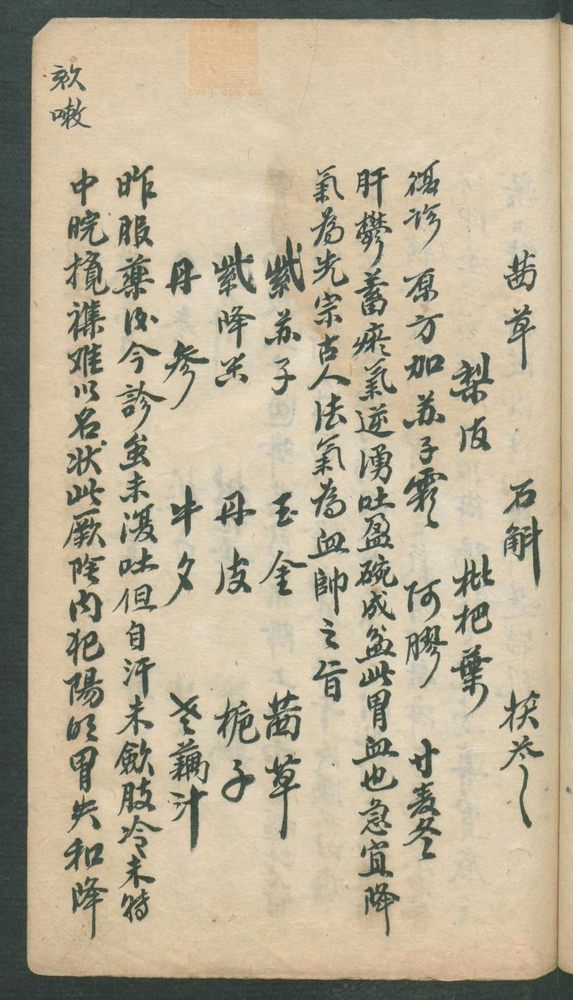 欬嗽
茜草 石斛 扶參〻
梨皮 枇杷葉
復診 原方加苏子霜 阿膠 廿麦冬
肝鬱蓄瘀氣逆湧吐盈碗成盆此胃血也急宜降
氣為先宗古人法氣為血帥之旨
紫苏子 玉金 茜草
紫降 丹皮 梔子
丹參 牛夕 老藕汁
昨服藥後今診虽未復吐但自汗未斂肢冷未
中脘擾襍难以名状此厥陰內犯陽明胃失和降